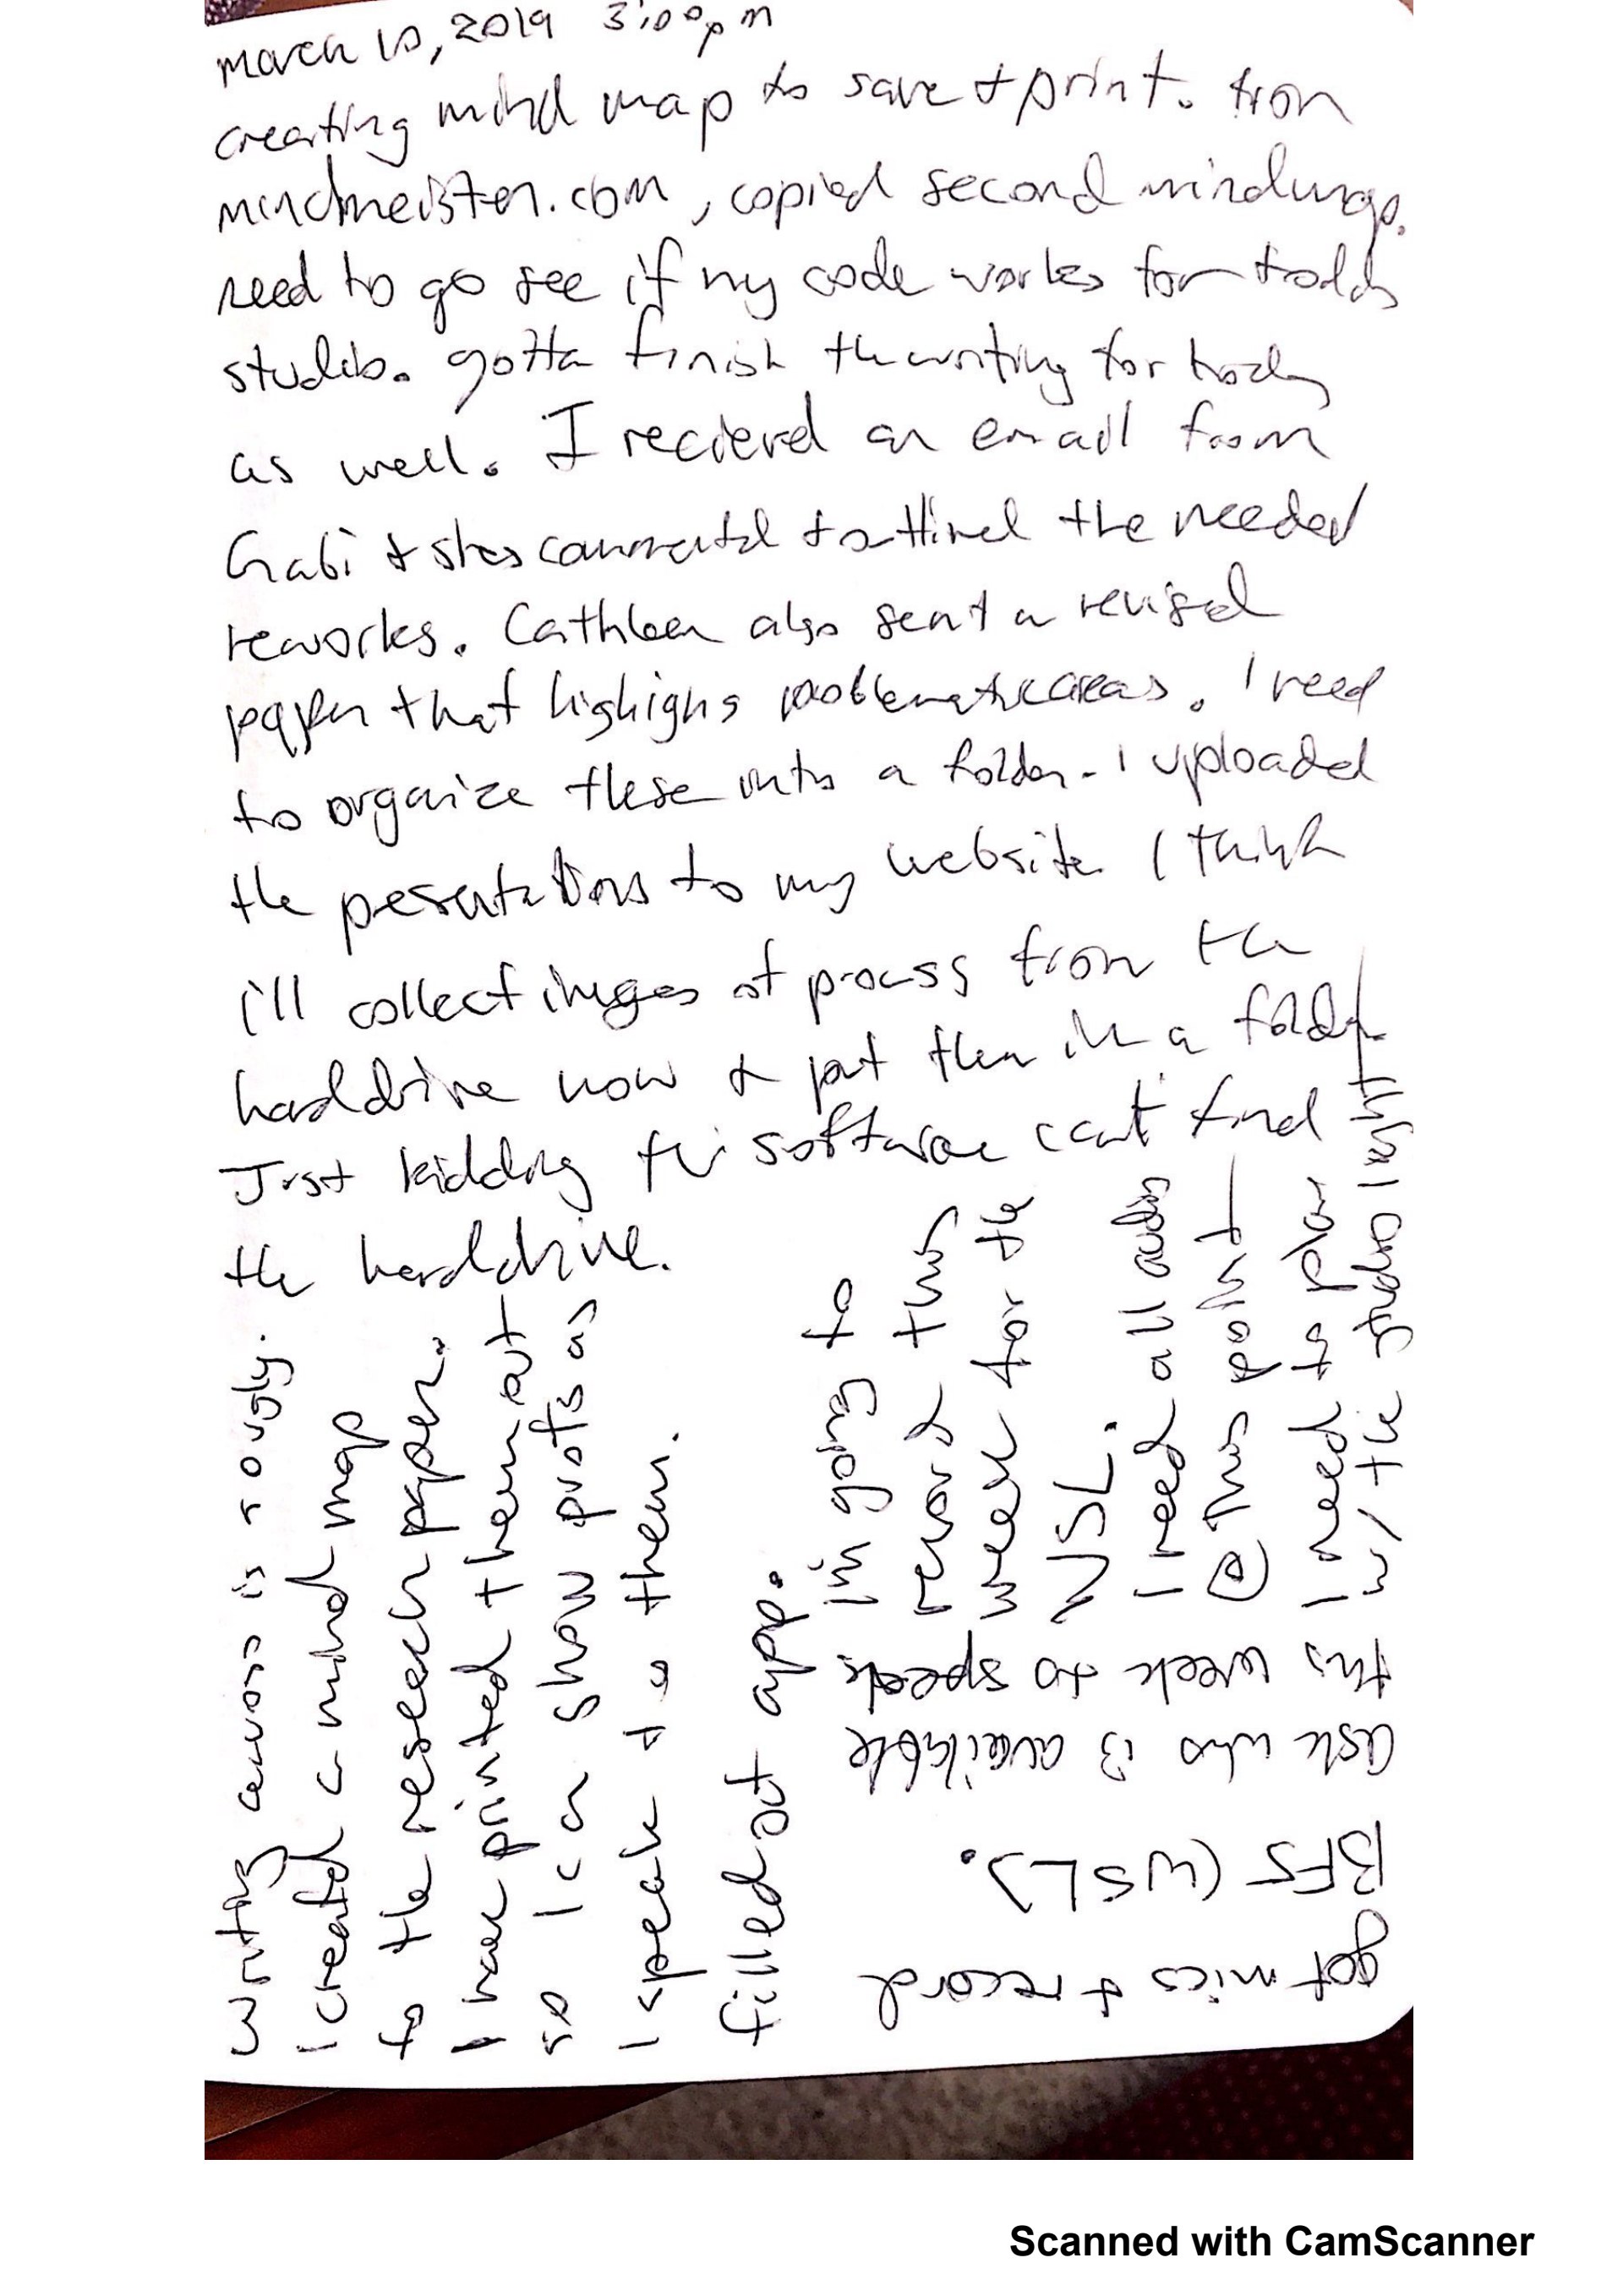 march 10, 2019 3:00pm
creating mind map to save + print. from
mindmeister.com, copied second mindmap.
need to go see if my code works for todds
studio. gotta finish the writing for today
as well. I recieved an email from
Gabi & shes commented & outlined the needed
reworks. Cathleen also sent a revised
paper that highlighs problematic areas. I need
to organize these into a folder. I uploaded
the presentations to my website. I think
i'll collect images of process from the
harddrive now & put them in a folder
Just kidding the software cant find
the harddrive.
writing across is rough.
I created a mind map
to the research paper.
I have printed them out
so I can show profs as
I speak to them.
filled out app.
im going to
record this
week for the
WSL.
I need all audio
@ this point
I need to plan
w/ the studio 1 wght
got mics & record
BFS (WSL).
ask who is available
this week to speak
Scanned with CamScanner